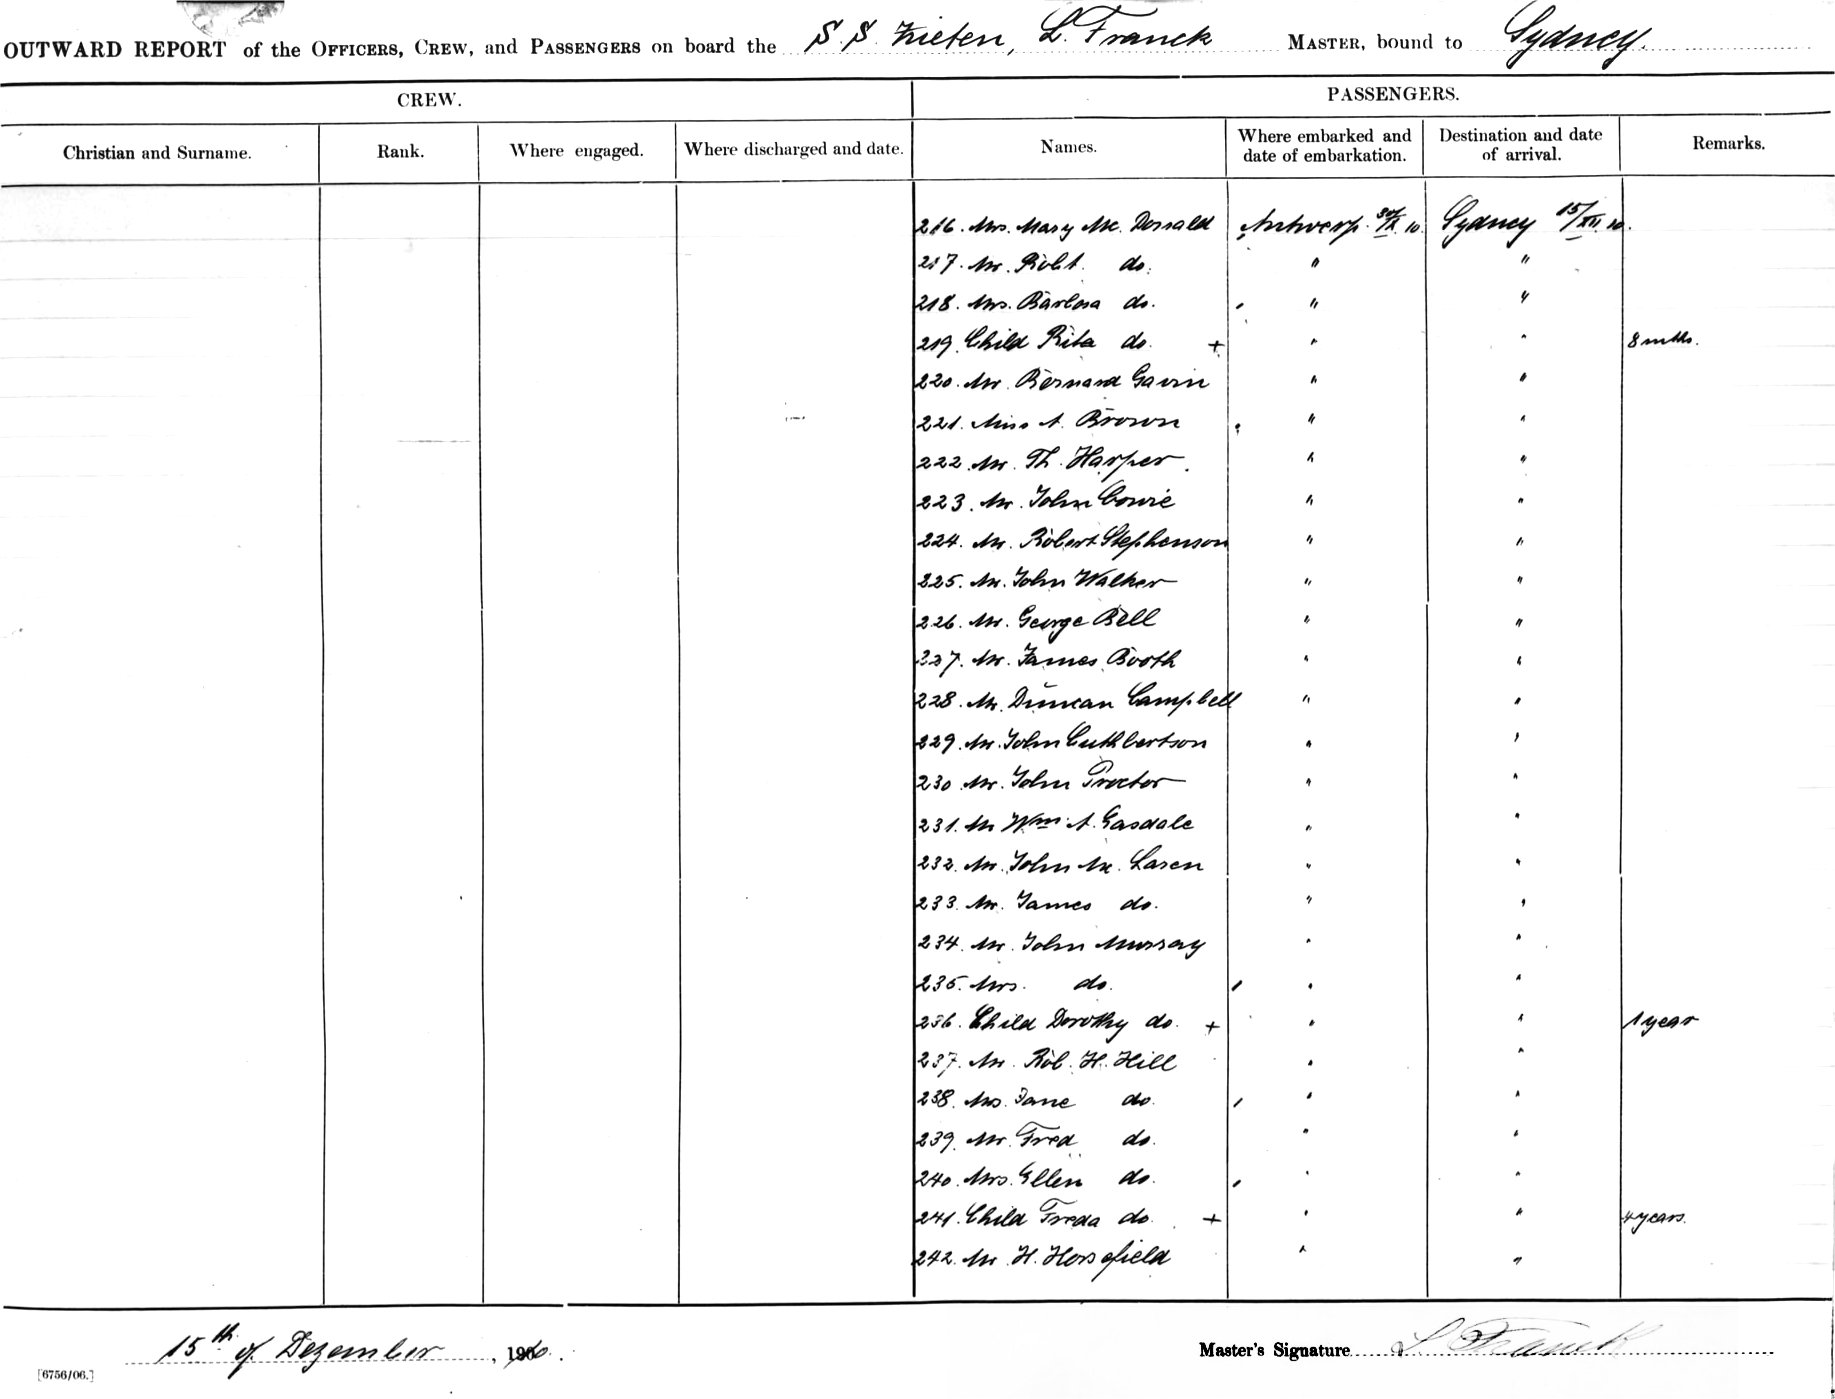 OUTWARD REPORT of the OFFICERS, CREW, and PASSENGERS on board the S S. Zieten, L. Franck MASTER, bound to Sydney.
CREW. PASSENGERS.
Christian and Surname. Rank. Where engaged. Where discharged and date. Names. Where embarked and date of embarkation. Destination and date of arrival. Remarks.
216. Mrs. Mary Mc. Donald Antwerp 30/X. 10. Sydney 15/XII. 10.
217. Mr. Robt. do. " "
218. Mrs. Barbara do. " "
219. Child Rita do. + " " 8 mths.
220. Mr. Bernard Gavin " "
221. Miss A. Brown " "
222. Mr. Th. Harper " "
223. Mr. John Cowie " "
224. Mr. Robert Stephenson " "
225. Mr. John Walker " "
226. Mr. George Bell " "
227. Mr. James Booth " "
228. Mr. Duncan Campbell " "
229. Mr. John Cuthbertson " "
230. Mr. John Proctor " "
231. Mr Wm. A. Gasdale " "
232. Mr. John Mc. Laren " "
233. Mr. James do. " "
234. Mr. John Murray " "
235. Mrs. do. " "
236. Child Dorothy do. + " " 1 year
237. Mr. Rob. H. Hill " "
238. Mrs. Jane do. " "
239. Mr. Fred do. " "
240. Mrs. Ellen do. " "
241. Child Freda do. + " " 4 years.
242. Mr H. Horsefield " "
15th of Dezember, 1910.
Master's Signature L. Franck
[6756/06.]